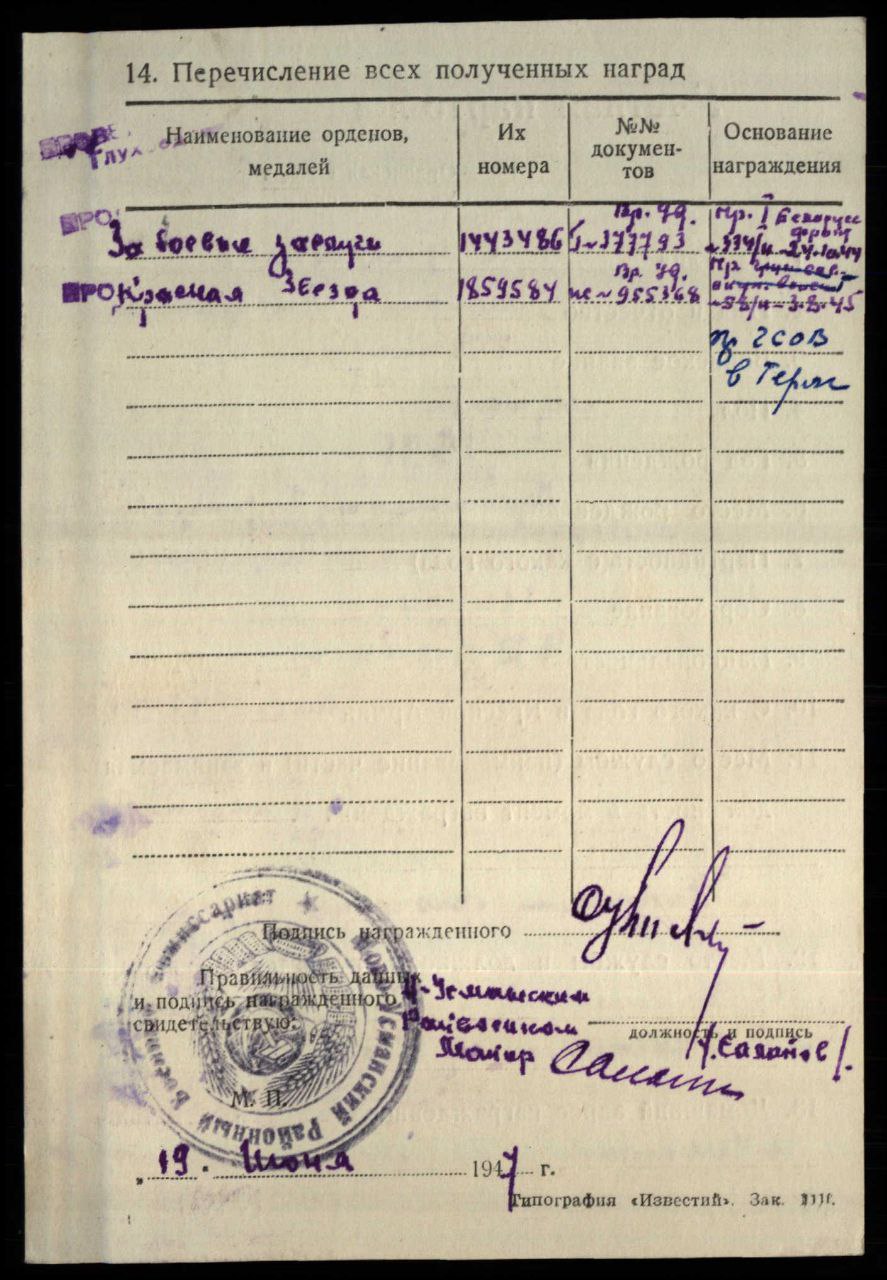 14. Перечисление всех полученных наград
Наименование орденов, медалей
Их номера
№№ докумен-тов
Основание награждения
За боевые заслуги 1443486 Вр. уд. Б № 377793 Пр. I Белорусс фронт № 394/н - 24.10.44
Красная Звезда 1859584 Вр. уд. № 955368 Пр № 98/н - 3.8.45
пр ГСОВ
в Герм
Подпись награжденного
Правильность данных
и подпись награжденного
свидетельствую:
Н-Усманским
Райвоенком
Майор
должность и подпись
М. П.
Военный Комиссариат
Ново-Усманский Районный
„19. Июня 1947 г.
Типография «Известий». Зак.